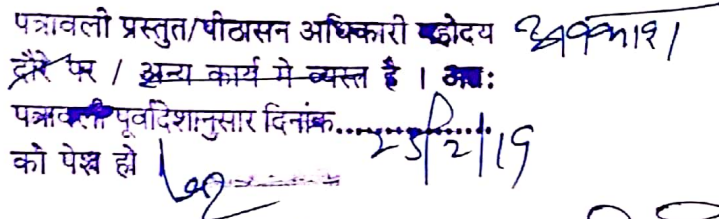 पत्रावली प्रस्तुत/पीठासन अधिकारी महोदय अवकाश
दौरे पर / अन्य कार्य मे व्यस्त है । अतः
पत्रावली पूर्वादेशानुसार दिनांक.................. 25/2/19
को पेश हो